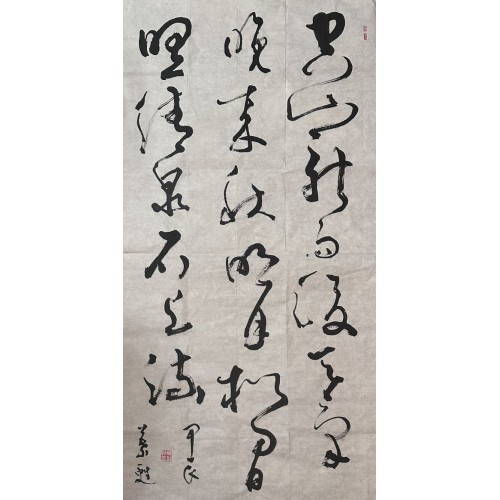 空山新雨後天氣
晚來秋明月松間
照清泉石上流
甲辰